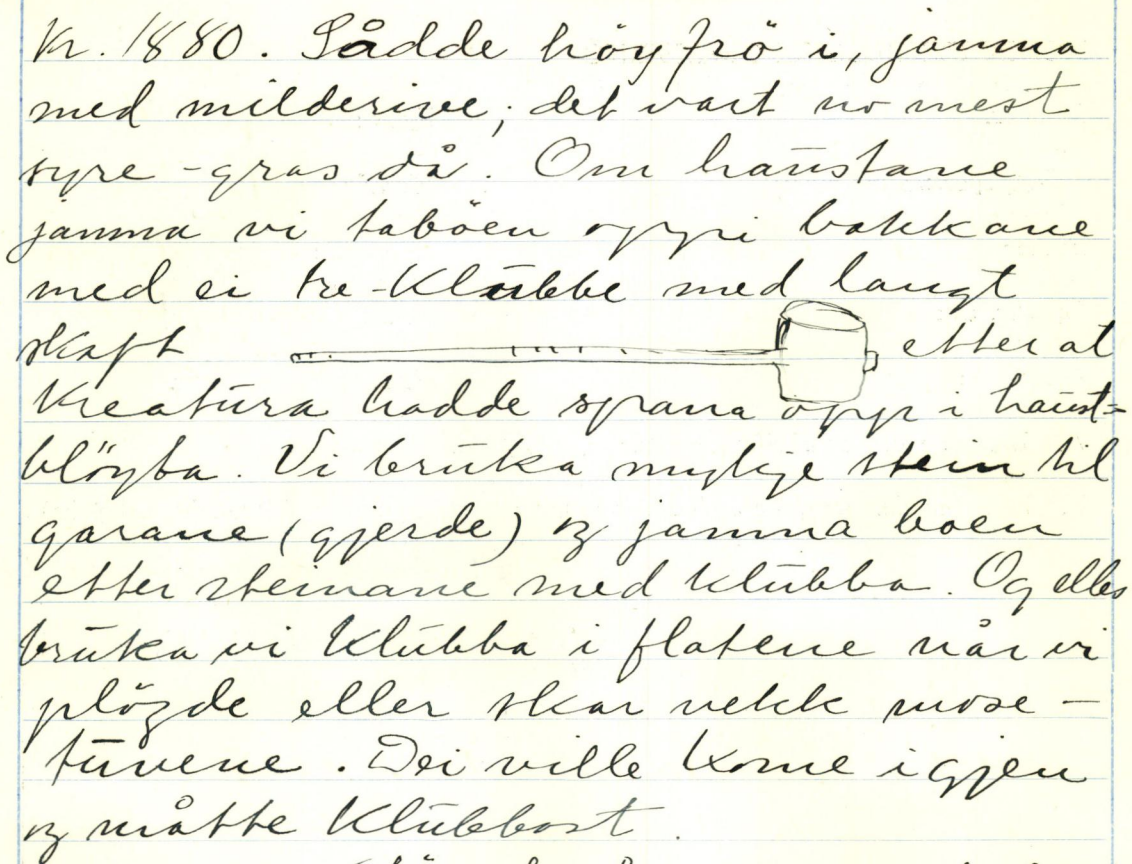 kr. 1880. Sådde höyfrö i, jamna
med milderive; det vart no mest
syre-gras då. Om haustane
jamna vi taböen oppi bakkane
med ei tre-klubbe med langt
skaft etter at
kreatura hadde spana opp i haust=
blöyta. Vi bruka mykje stein til
garane (gjerde) og jamna boen
etter steinane med klubba. Og elles
bruka vi klubba i flatene når vi
plögde eller skar vekk mose-
tuvene. Dei ville kome igjen
og måtte klubbast.